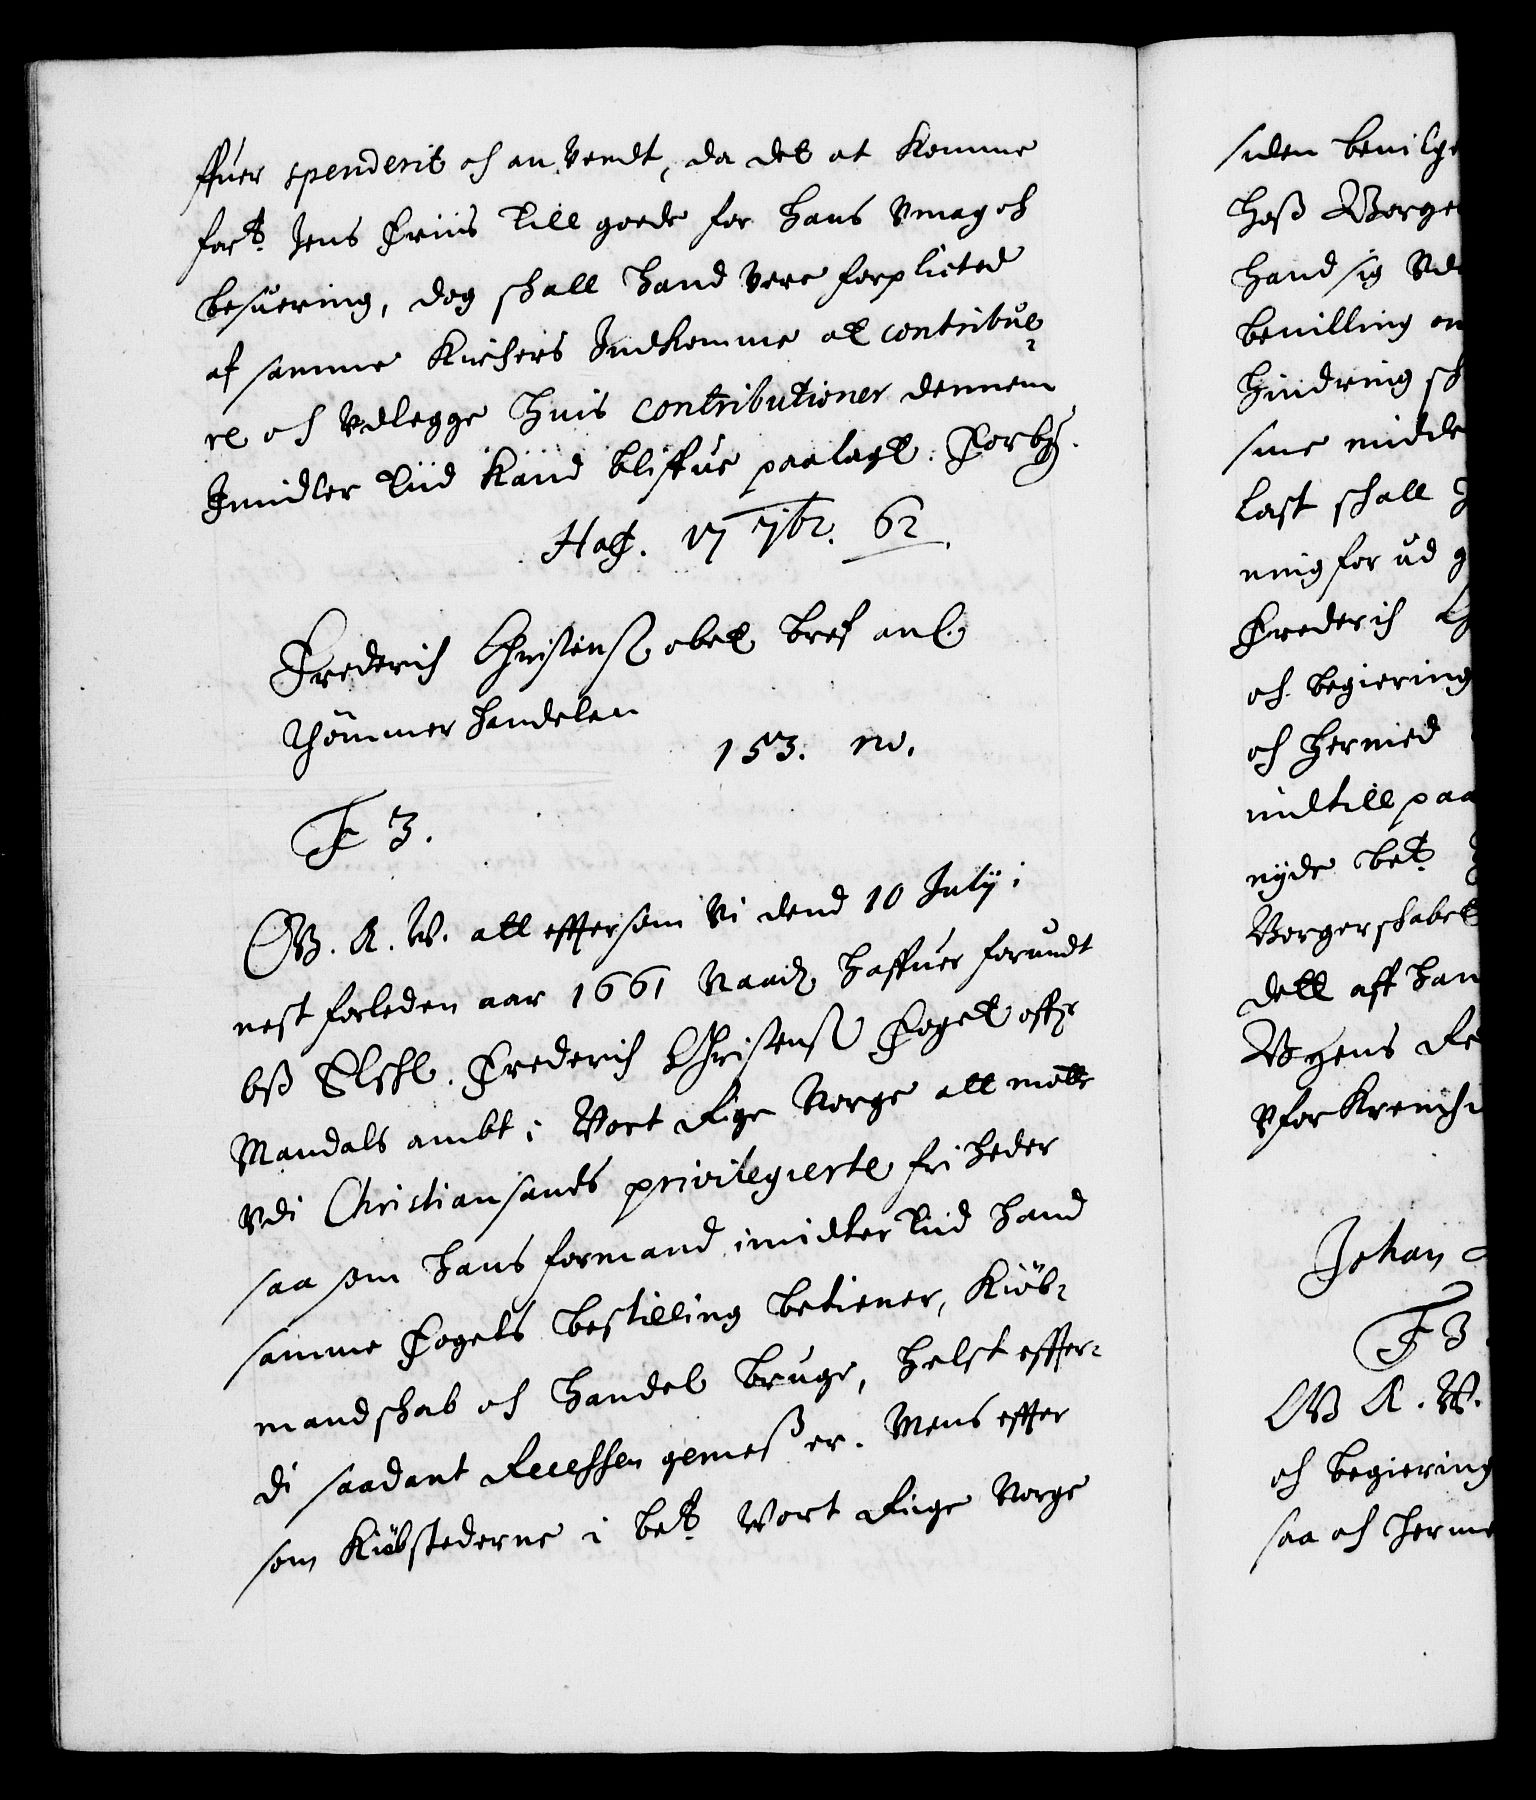 ffuer spenderit och anvendt, da det at komme
for.t Jens Friis till goede for hans Vmag och
besuering, dog schall hand vere forplicted
af samme Kirchers Indkomme at contribue-
re och Vdlegge huis contributioner dennem
Imidler tiid kand bliffue paalagt. Forby.
Haf. 17 7br. 62.
Frederich Christens: obet bref anl.
Thömmer handelen
153. no.
F 3.
G. A. W. att efftersom Vi dend 10 July i
nest forleden aar 1661 Naadz haffuer forundt
oß Elskl. Frederich Christensß Foget offr
Mandals ambt i Vort Rige Norge att motte
Vdi Christiansands privilegierte friheder
saa som hans formand, imidler tiid hand
samme Fogets bestilling betiener, Kiöb-
mandschab och handel bruge, helst effter-
di saadant Recessen gemeß er. Mens effter
som Kiöbstederne i be.t Vort Riige Norge
siden beuilge
hoß Borge
hand sig Vd
beuilling
hindring sch
sine midde
last schall
ning for ud
Frederich
och begiering
och hermed
indtill paa
nyde be.t
Borgerschabet
dett aff han
Byens Re
VforKrench
Johan
F 3.
G A. W.
och begiering
saa och herme